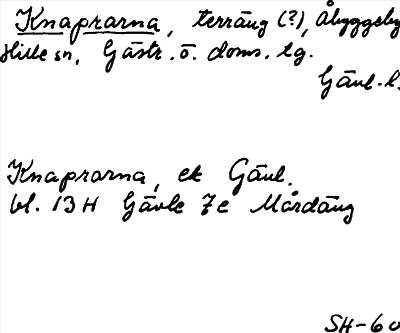 Knaprarna, terräng (?), Åbyggeby
Hille sn, Gästr. ö. doms. tg.
Gävl. l.
Knaprarna, ek Gävl.
bl. 13 H Gävle 7c Mårdäng
SH-60